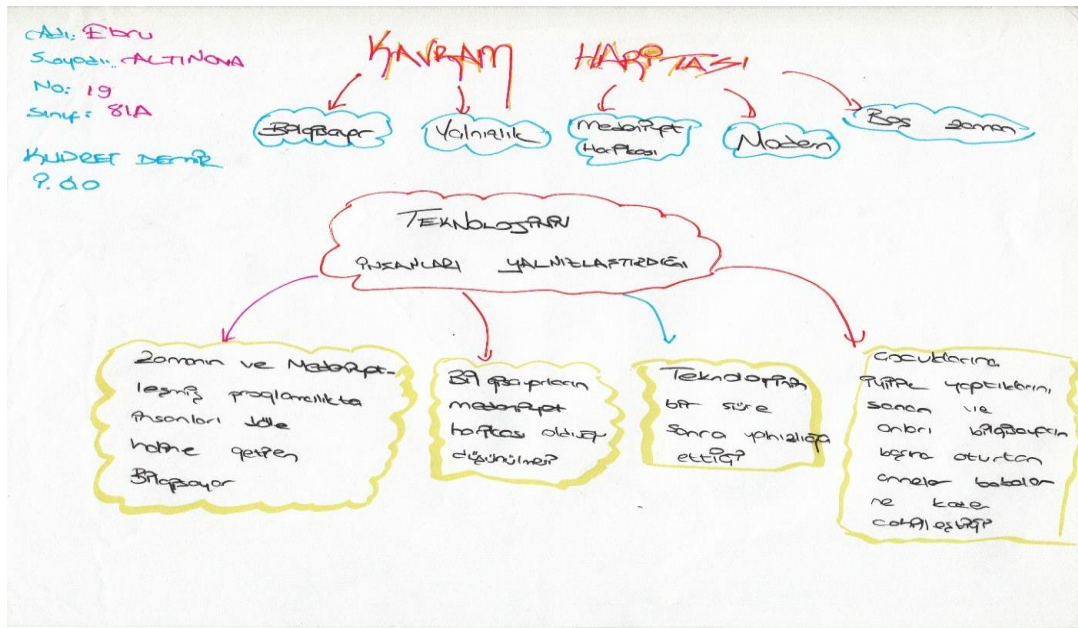 Adı: Ebru
Soyadı: ALTINOVA
No: 19
Sınıf: 81A
KUDRET DEMİR
İ.Ö.O
KAVRAM HARİTASI
Bilgisayar
Yalnızlık
Medeniyet
Harikası
Modern
Boş zaman
TEKNOLOJİNİN
İNSANLARI YALNIZLAŞTIRDIĞI
Zamanın ve Medeniyet-
leşmiş proglamcılıkta
insanları köle
haline getiren
Bilgisayar
Bilgisayarların
medeniyet
harikası olduğu
düşünülmesi
Teknolojinin
bir süre
sonra yalnızlığa
ettiği
Çocuklarına
iyilik yaptıklarını
sanan ve
onları bilgisayarın
başına oturtan
anneler babalar
ne kadar
cahilleştiği